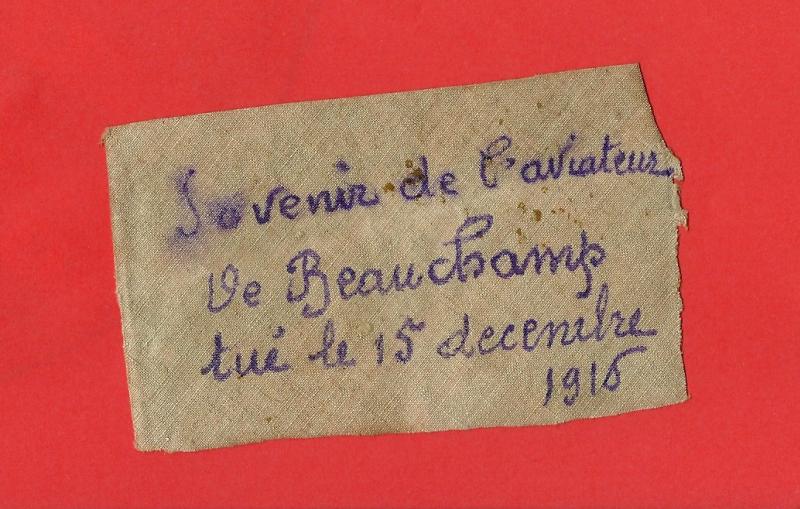 Sovenir de l'aviateur
De Beauchamp
tué le 15 decembre
1915